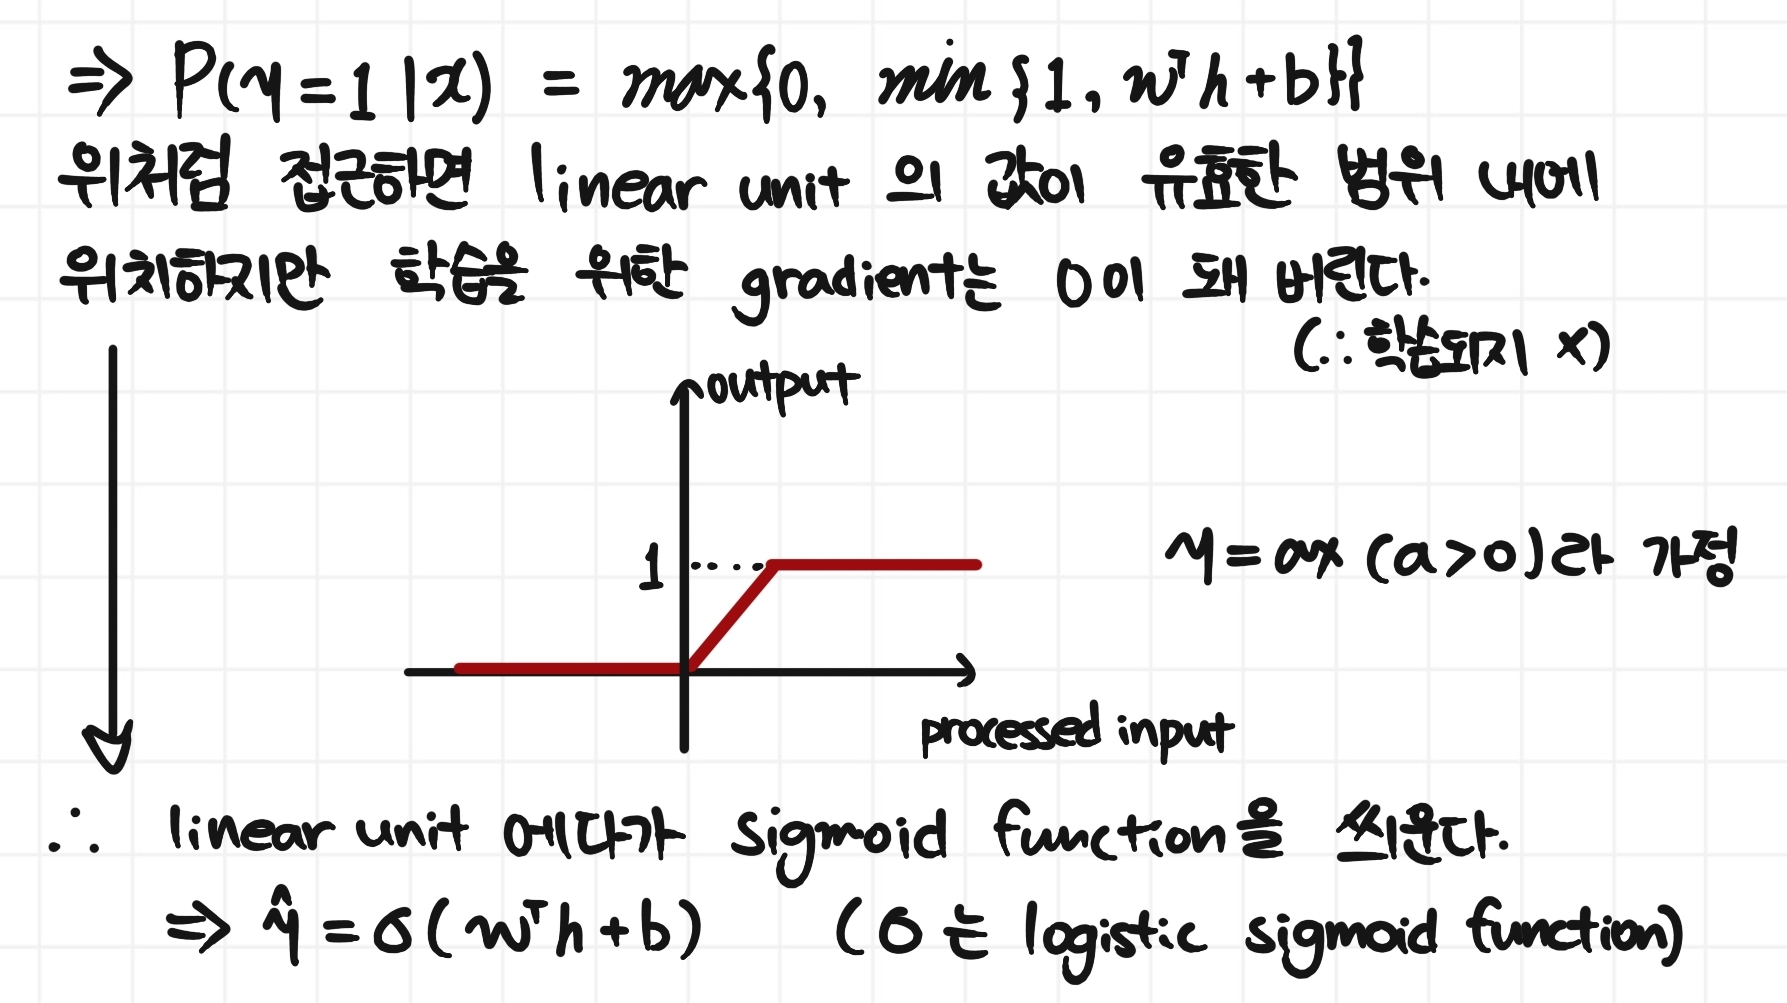 ⇒ P(y=1|x) = max{0, min{1, wᵀh+b}}
위처럼 접근하면 linear unit 의 값이 유효한 범위 내에
위치하지만 학습을 위한 gradient는 0이 돼 버린다.
(∵ 학습되지 x)
output
1
y=ax (a>0)라 가정
processed input
∴ linear unit 에다가 sigmoid function을 씌운다.
⇒ ŷ = σ(wᵀh+b) (σ는 logistic sigmoid function)